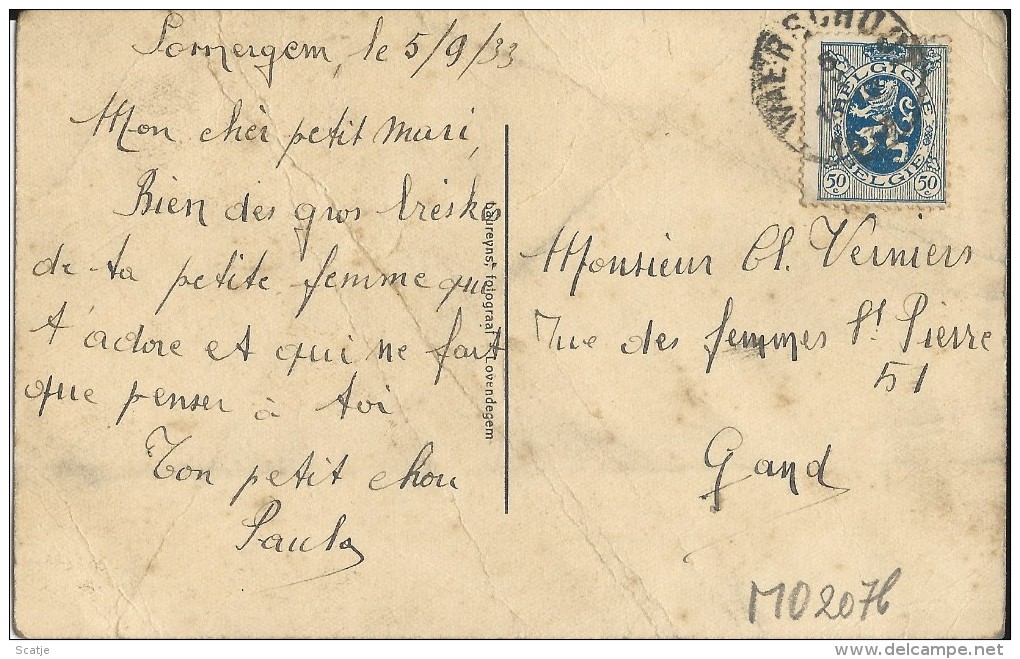 Somergem, le 5/9/33
Mon cher petit mari,
Bien des gros
de ta petite femme qui
t'adore et qui ne fait
que penser à toi
Ton petit chou
Paula
Laureyns, fotograaf Lovendegem
WAERSCHOOT
BELGIQUE
BELGIE
50 c 50 c
Monsieur Cl. Verniers
Rue des femmes St Pierre
51
Gand
MO2076
Scatje